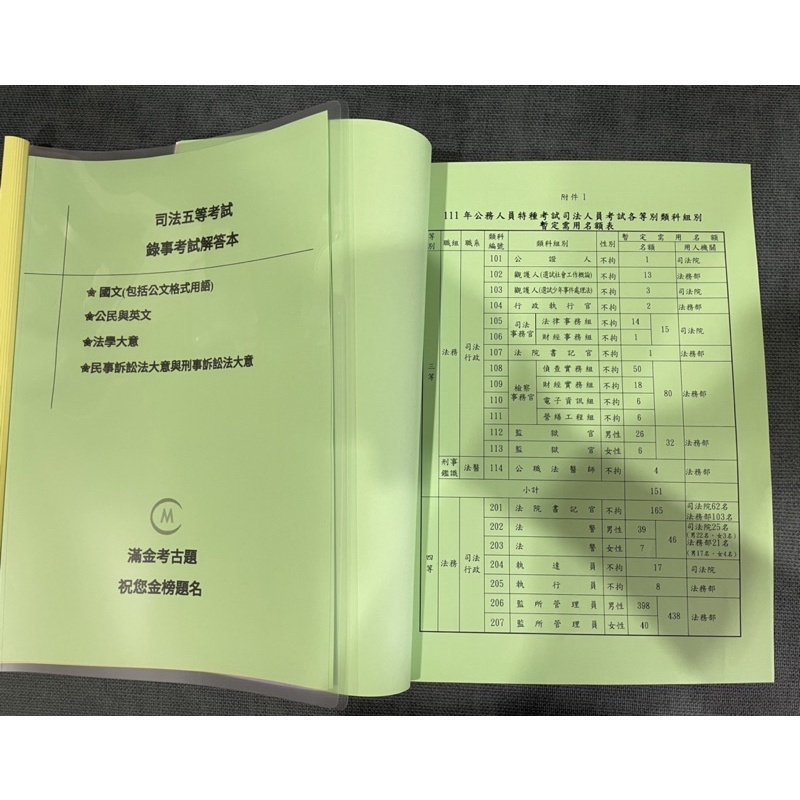 司法五等考試
錄事考試解答本
★國文(包括公文格式用語)
★公民與英文
★法學大意
★民事訴訟法大意與刑事訴訟法大意
M
滿金考古題
祝您金榜題名
附件1
111年公務人員特種考試司法人員考試各等別類科組別
暫定需用名額表
等別 職組 職系 類科編號 類科組別 性別 暫定需用名額
名額 用人機關
三等 法務 司法行政
101 公證人 不拘 1 司法院
102 觀護人(選試社會工作概論) 不拘 13 法務部
103 觀護人(選試少年事件處理法) 不拘 3 司法院
104 行政執行官 不拘 2 法務部
105 司法事務官 法律事務組 不拘 14 15 司法院
106 財經事務組 不拘 1
107 法院書記官 不拘 1 法務部
108 檢察事務官 偵查實務組 不拘 50 80 法務部
109 財經實務組 不拘 18
110 電子資訊組 不拘 6
111 營繕工程組 不拘 6
112 監獄官 男性 26 32 法務部
113 監獄官 女性 6
刑事鑑識 法醫 114 公職法醫師 不拘 4 法務部
小計 151
四等 法務 司法行政
201 法院書記官 不拘 165 司法院62名 法務部103名
202 法警 男性 39 46 司法院25名 (男22名、女3名)
203 法警 女性 7 法務部21名 (男17名、女4名)
204 執達員 不拘 17 司法院
205 執行員 不拘 8 法務部
206 監所管理員 男性 398 438 法務部
207 監所管理員 女性 40